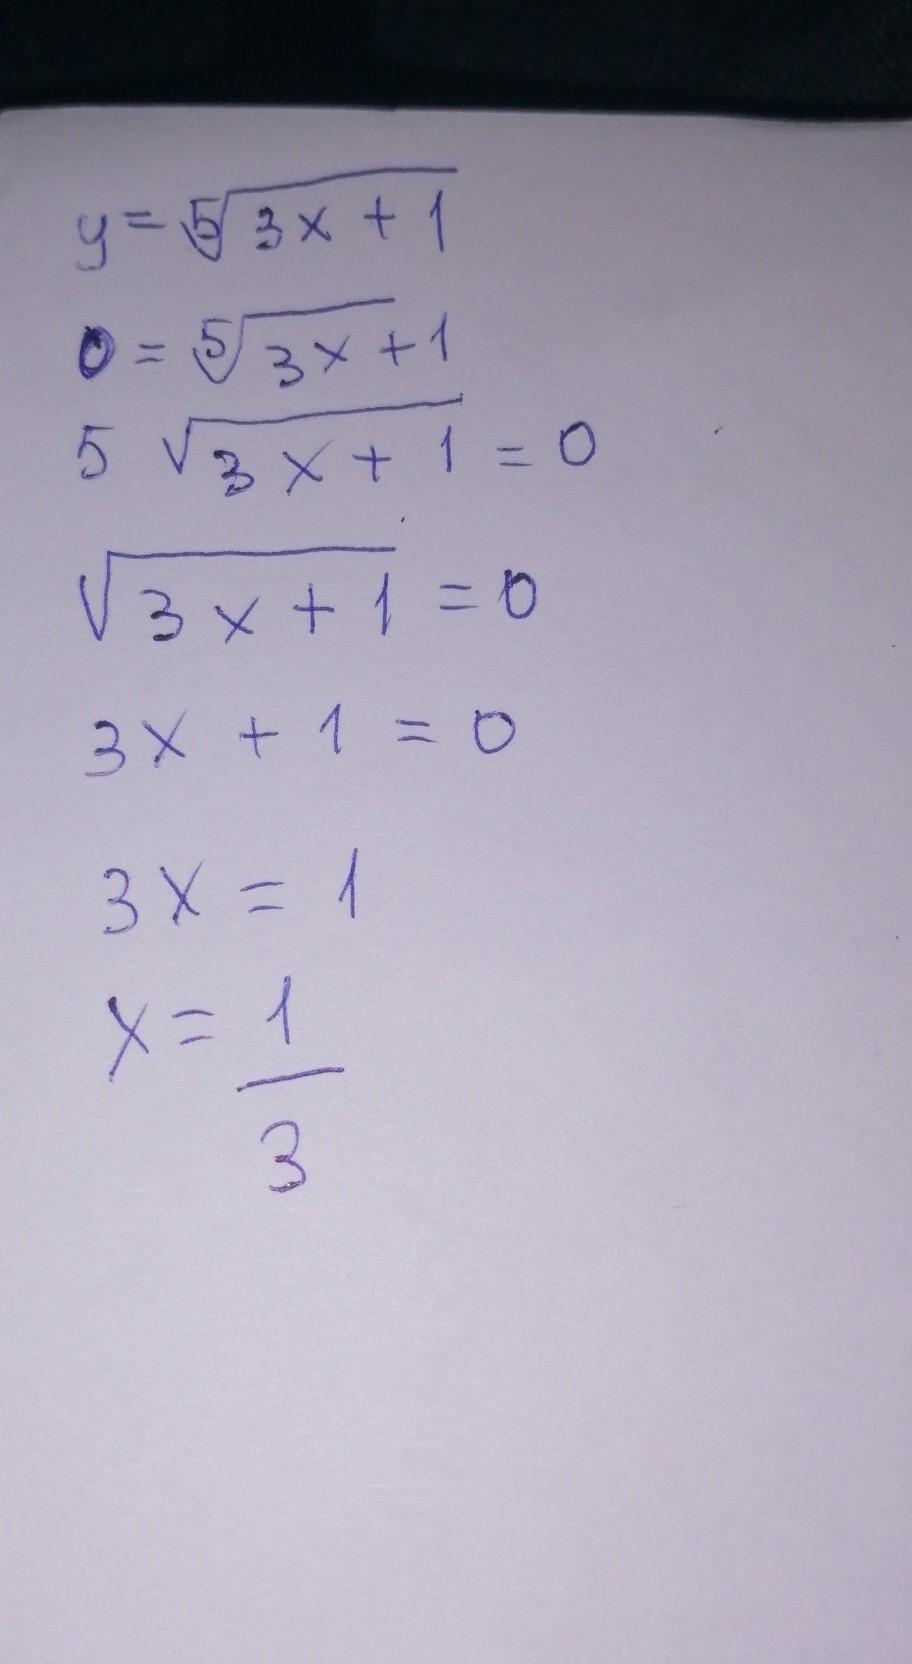 y = ⁵√(3x + 1)
0 = ⁵√(3x) + 1
5 √(3x + 1) = 0
√(3x + 1) = 0
3x + 1 = 0
3x = 1
x = 1/3